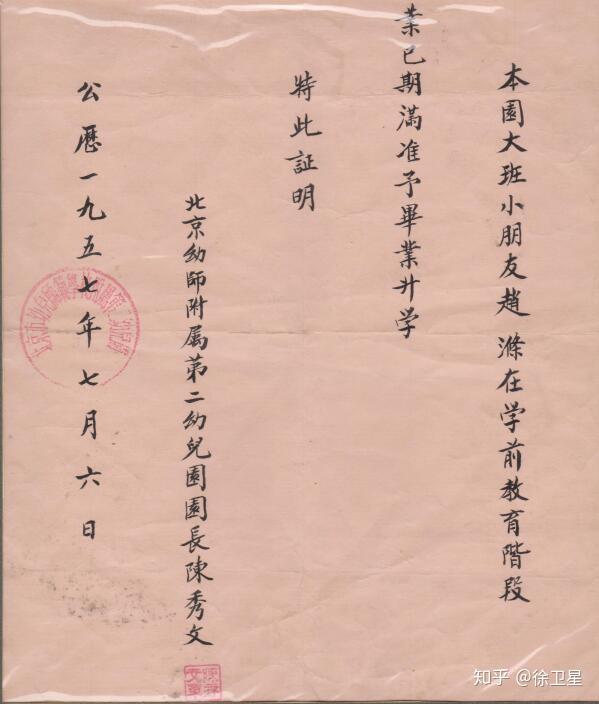 本園大班小朋友趙 滌在学前教育階段
業已期滿准予畢業升学
特此証明
北京幼師附属第二幼兒園園長陳秀文
公歷一九五七年七月六日
知乎 @徐卫星